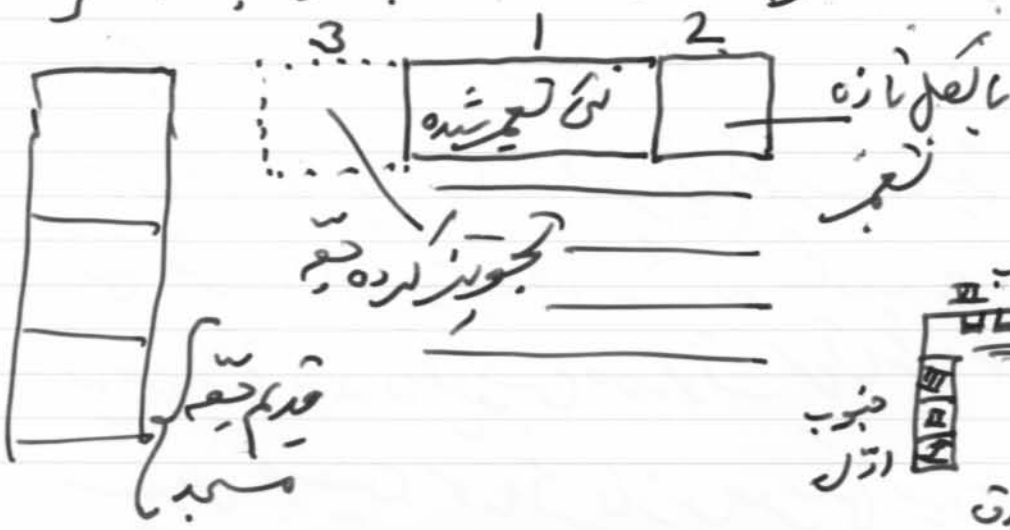 3 1 2
نئی تعمیر شدہ
بالکل تازہ
تعمیر
تجویز کردہ حصّہ
قدیم حصّہ
مسجد
جنوب